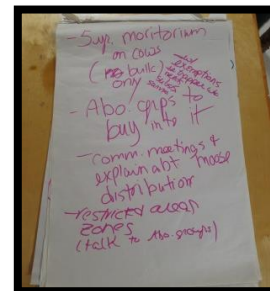 - 5 yr. moritorium
on cows
(no bulls) only
- Abo. grps to
buy in to it
- Comm. meetings &
explain abt moose
distribution
- restricted access
zones
(talk to Abo. groups)